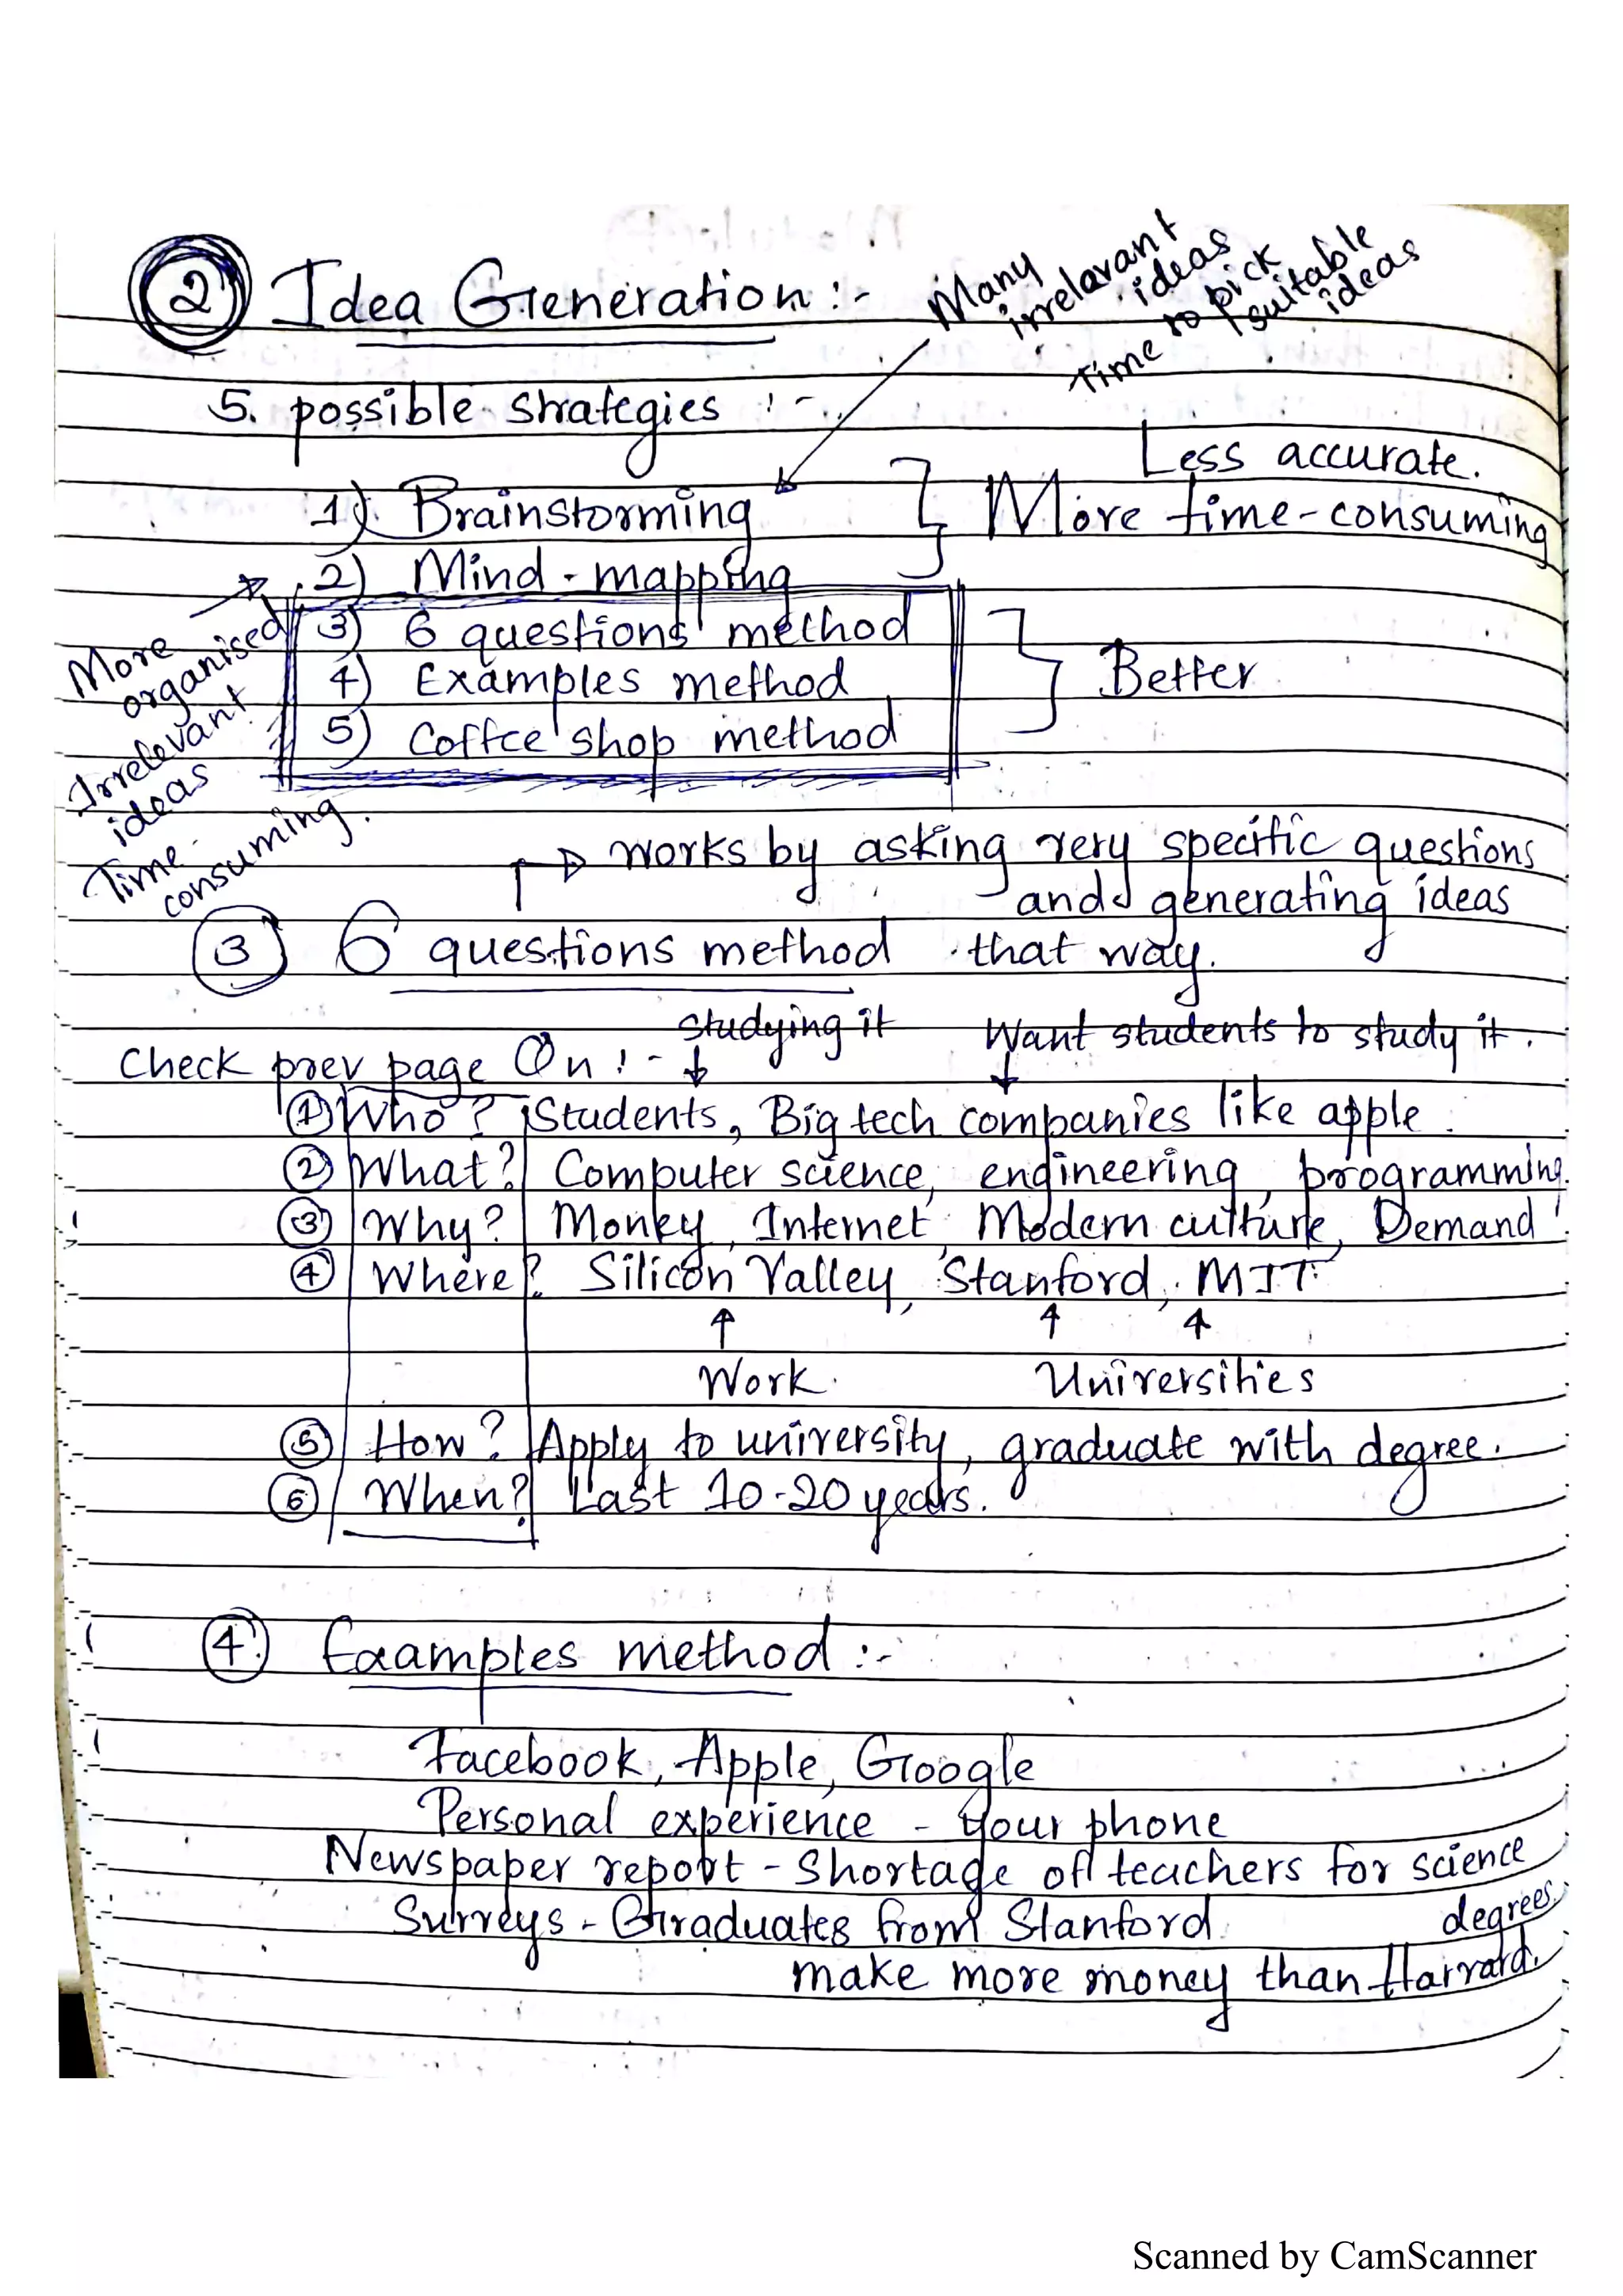 2 Idea Generation :-
Many
irrelavant
ideas
Time to pick
suitable
ideas
5. possible strategies :-
Less accurate.
1) Brainstorming
More time-consuming
2) Mind-mapping
3) 6 questions method
4) Examples method
Better
5) Coffee shop method
More
organised
Irrelevant
ideas
Time
consuming.
works by asking very specific questions
and generating ideas
3 6 questions method that way.
studying it Want students to study it.
Check prev page Qn :-
1 Who? Students, Big tech companies like apple.
2 What? Computer science, engineering, programming.
3 Why? Money, Internet, Modern culture, Demand
4 Where? Silicon Valley, Stanford, MIT
Work Universities
5 How? Apply to university, graduate with degree.
6 When? Last 10-20 years.
4. Examples method :-
Facebook, Apple, Google
Personal experience - your phone
Newspaper report - Shortage of teachers for science
degrees.
Surveys - Graduates from Stanford
make more money than Harvard.
Scanned by CamScanner